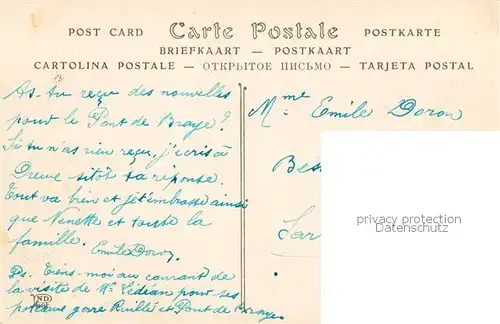 POST CARD Carte Postale POSTKARTE
BRIEFKAART — POSTKAART
CARTOLINA POSTALE — ОТКРЫТОЕ ПИСЬМО — TARJETA POSTAL
As-tu reçu des nouvelles
pour le Pont de Braye?
Si tu n'as rien reçu, j'écris à
Dreux sitôt ta réponse.
Tout va bien et je t'embrasse ainsi
que Nénette et toute la
famille. Emile Doron
Ps. Tiens-moi au courant de
la visite de Mr pour ses
gare Ruillé et Pont de Braye
Mme Emile Doron
Bess
Sar
privacy protection
Datenschutz
ND